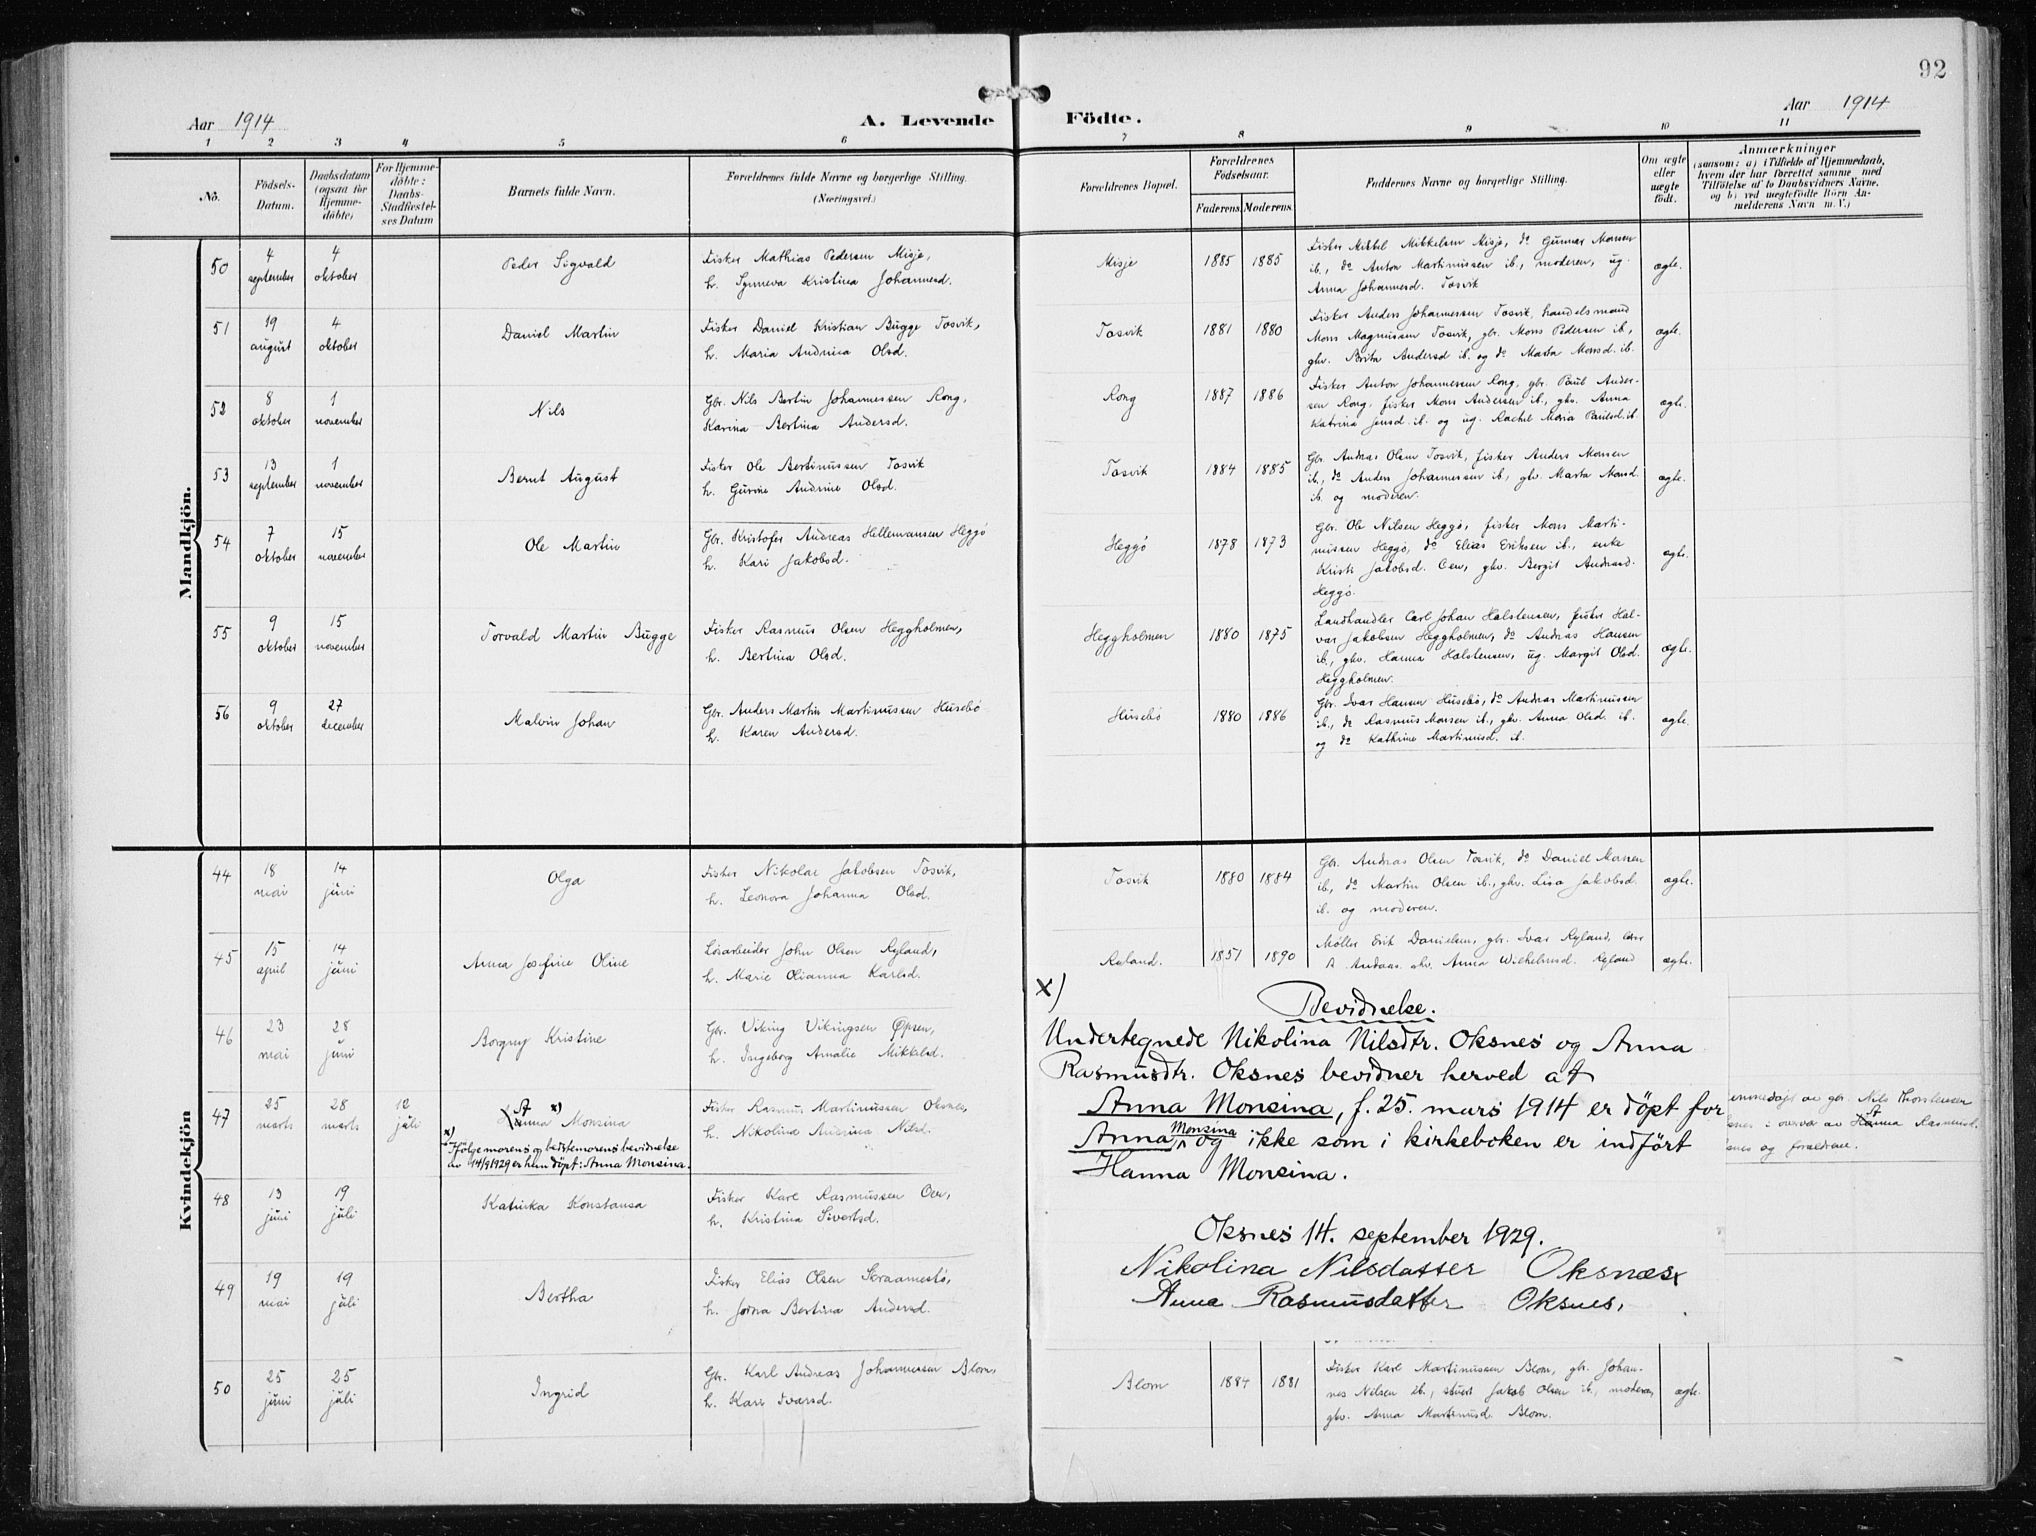 92
Aar 1914
A. Levende
Födte.
Aar 1914
1 2 3 4 5 6 7 8 9 10 11
Nö.
Födsels-
Datum.
Daabsdatum
(ogsaa for
Hjemme-
döbte)
For Hjemme-
döbte:
Daabs-
Stadfæstel-
ses Datum
Barnets fulde Navn.
Forældrenes fulde Navne og borgerlige Stilling.
(Næringsvei.)
Forældrenes Bopæl.
Forældrenes
Födselsaar.
Faderens. Moderens.
Faddernes Navne og borgerlige Stilling.
Om ægte
eller
uægte
födt.
Anmærkninger
(saasom: a) i Tilfælde af Hjemmedaab,
hvem der har forrettet samme med
Tilföielse af to Daabsvidners Navne,
og b) ved uægtefödte Börn An-
melderens Navn m.V.)
Mandkjön.
50
4
september
4
oktober
Peder Sigvald
Fisker Mathias Pedersen Misje,
h. Synneva Kristina Johannesd.
Misje
1885 1885
Fisker Mikkel Mikkelsen Misje, do Gunnar Monsen
ib., do Anton Martinussen ib., moderen, ug.
Anna Johannesd. Tosvik
ægte.
51
19
august
4
oktober
Daniel Martin
Fisker Daniel Kristian Bugge Tosvik,
h. Maria Andrina Olsd.
Tosvik
1881 1880
Fisker Anders Johannessen Tosvik, handelsmand
Mons Magnussen Tosvik, gbr. Mons Pedersen ib,
ghv. Brita Andersd ib. og do Marta Monsd. ib.
ægte.
52
8
oktober
1
november
Nils
Gbr. Nils Bertin Johannessen Rong,
Karina Bertina Andersd.
Rong
1887 1886
Fisker Anton Johannessen Rong, gbr. Paul Ander-
sen Rong, fisker Mons Andersen ib., ghv. Anna
Katrina Jensd. ib. og ug. Rachel Maria Paulsd. ib.
ægte.
53
13
september
1
november
Bernt August
Fisker Ole Bertinussen Tosvik
h. Gurine Andrine Olsd.
Tosvik
1884 1885
Gbr. Andras Olsen Tosvik, fisker Anders Monsen
ib., do Anders Johannessen ib., ghv. Marta Monsd.
ib. og moderen.
ægte.
54
7
oktober
15
november
Ole Martin
Gbr. Kristofer Andreas Hellemansen Heggö
h. Kari Jakobsd.
Heggö
1878 1873
Gbr. Ole Nilsen Heggö, fisker Mons Marti-
nussen Heggö, do Elias Eriksen ib., enke
Kristi Jakobsd. Oen, ghv. Bergit Andreasd.
Heggö.
ægte.
55
9
oktober
15
november
Torvald Martin Bugge
Fisker Rasmus Olsen Heggholmen,
h. Bertina Olsd.
Heggholmen
1880 1875
Landhandler Carl Johan Halstensen, fisker Hal-
var Jakobsen Heggholmen, do Andras Hansen
ib., ghv. Hanna Halstensen, ug. Margit Olsd.
Heggholmen.
ægte.
56
9
oktober
27
december
Malvin Johan
Gbr. Anders Martin Martinussen Husebö
h. Karen Andersd.
Husebö
1880 1886
Gbr. Ivar Hansen Husebö, do Andras Martinussen
ib., do Rasmus Monsen ib., ghv. Anna Olsd. ib.
og do Kathrine Martinusd. ib.
ægte.
Kvindekjön
44
18
mai
14
juni
Olga
Fisker Nikolai Jakobsen Tosvik,
h. Leonora Johanna Olsd.
Tosvik
1880 1884
Gbr. Andras Olsen Tosvik, do Daniel Monsen
ib, do Martin Olsen ib., ghv. Lisa Jakobsd.
ib. og moderen.
ægte.
45
15
april
14
juni
Anna Josefine Oline
Lösarbeider John Olsen Ryland,
h. Marie Olianna Karlsd.
Ryland.
1851 1890
Möller Erik Danielsen, gbr. Ivar Ryland,
ghv. Anna Wilhelmsd. Ryland
ægte.
46
23
mai
28
juni
Borgny Kristine
Gbr. Viking Vikingsen Öpsen,
h. Ingeborg Amalie Mikkelsd.
47
25
marts
28
marts
12
juli
A x)
Anna Monsina
x) Ifölge morens og bedstemorens bevidnelse
av 14/9 1929 er hun döpt: Anna Monsina.
Fisker Rasmus Martinussen Oksnes,
h. Nikolina Andrina Nilsd.
48
13
juni
19
juli
Katinka Konstansa
Fisker Karl Rasmussen Oen,
h. Kristina Sivertsd.
49
19
mai
19
juli
Bertha
Fisker Elias Olsen Skraamestö,
h. Jorna Bertina Andersd.
50
25
juni
25
juli
Ingrid
Gbr. Karl Andreas Johannessen Blom,
h. Kari Ivarsd.
x)
Bevidnelse.
Undertegnede Nikolina Nilsdtr. Oksnes og Anna
Rasmusdtr. Oksnes bevidner herved at
Anna Monsina, f. 25. mars 1914 er döpt for
Anna Monsina og ikke som i kirkeboken er indfört
Hanna Monsina.
Oksnes 14. september 1929.
Nikolina Nilsdatter Oksnæs
Anna Rasmusdatter Oksnes.
av gbr. Nils Thorstensen
i overvær av Hanna Rasmusd.
og forældrene.
Blom
1884 1881
Fisker Karl Martinussen Blom, gbr. Johan-
nes Nilsen ib., stuert Jakob Olsen ib., moderen,
ghv. Anna Martinusd. Blom.
ægte.